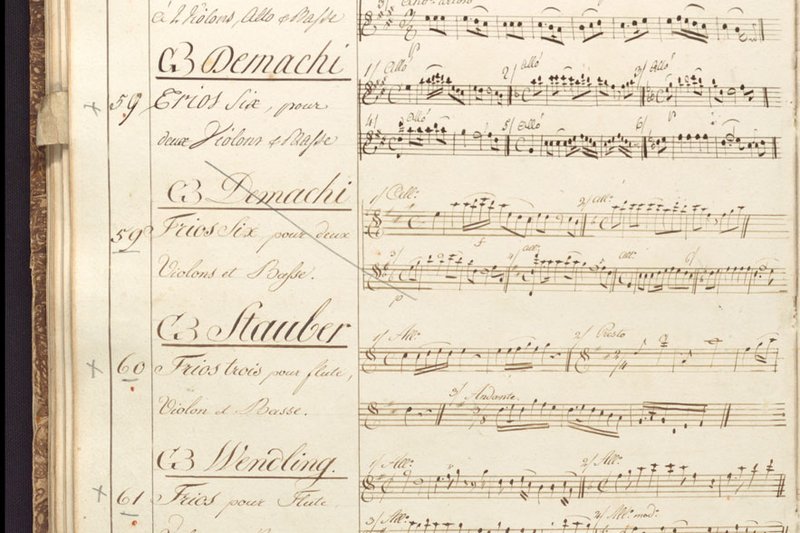 à 2 Violons, Alto & Basse
Demachi
59 Trios Six, pour
deux Violons & Basse
1/ Allo 2/ Allo 3/ Allo
4/ Allo 5/ Allo 6/
Demachi
59 Trios Six, pour deux
Violons et Basse.
1/ All: 2/ All:
3/ 4/ All: All: 6/
Stauber
60 Trios trois pour flute,
Violon et Basse.
1/ All: 2/ Presto
3/ Andante
Wendling.
61 Trios pour Flute
1/ All: 2/ All:
3/ All: 4/ All: mod: